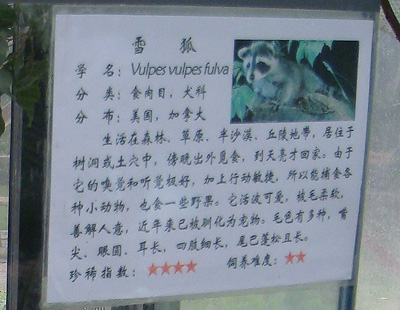 雪 狐
学 名：Vulpes vulpes fulva
分 类：食肉目，犬科
分 布：美国，加拿大
生活在森林、草原、半沙漠、丘陵地带，居住于
树洞或土穴中，傍晚出外觅食，到天亮才回家。由于
它的嗅觉和听觉极好，加上行动敏捷，所以能捕食各
种小动物，也食一些野果。它活波可爱，被毛柔软，
善解人意，近年来已被驯化为宠物。毛色有多种，嘴
尖、眼圆、耳长，四肢细长，尾巴蓬松且长。
珍稀指数：★★★★ 饲养难度：★★